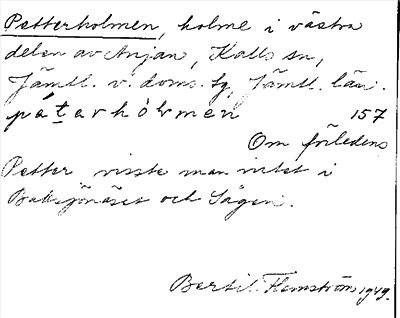 Petterholmen, holme i västra
delen av Anjan, Kalls sn,
Jämtl. v. doms. tg, Jämtl. län.
pátarhòlmen 157
Om förledens
Petter visste man intet i
Baksjönäset och Sågen.
Bertil Flemström 1949.